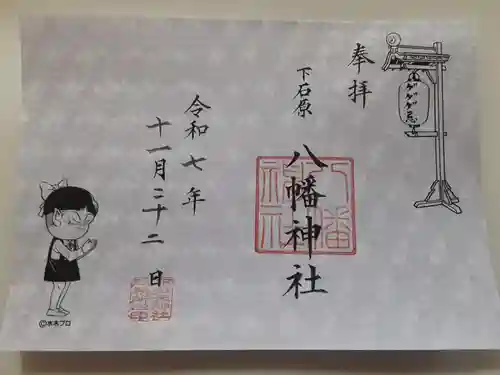 奉拝
下石原
八幡神社
令和七年
十一月二十二日
ゲゲゲ忌
八幡神社
©水木プロ